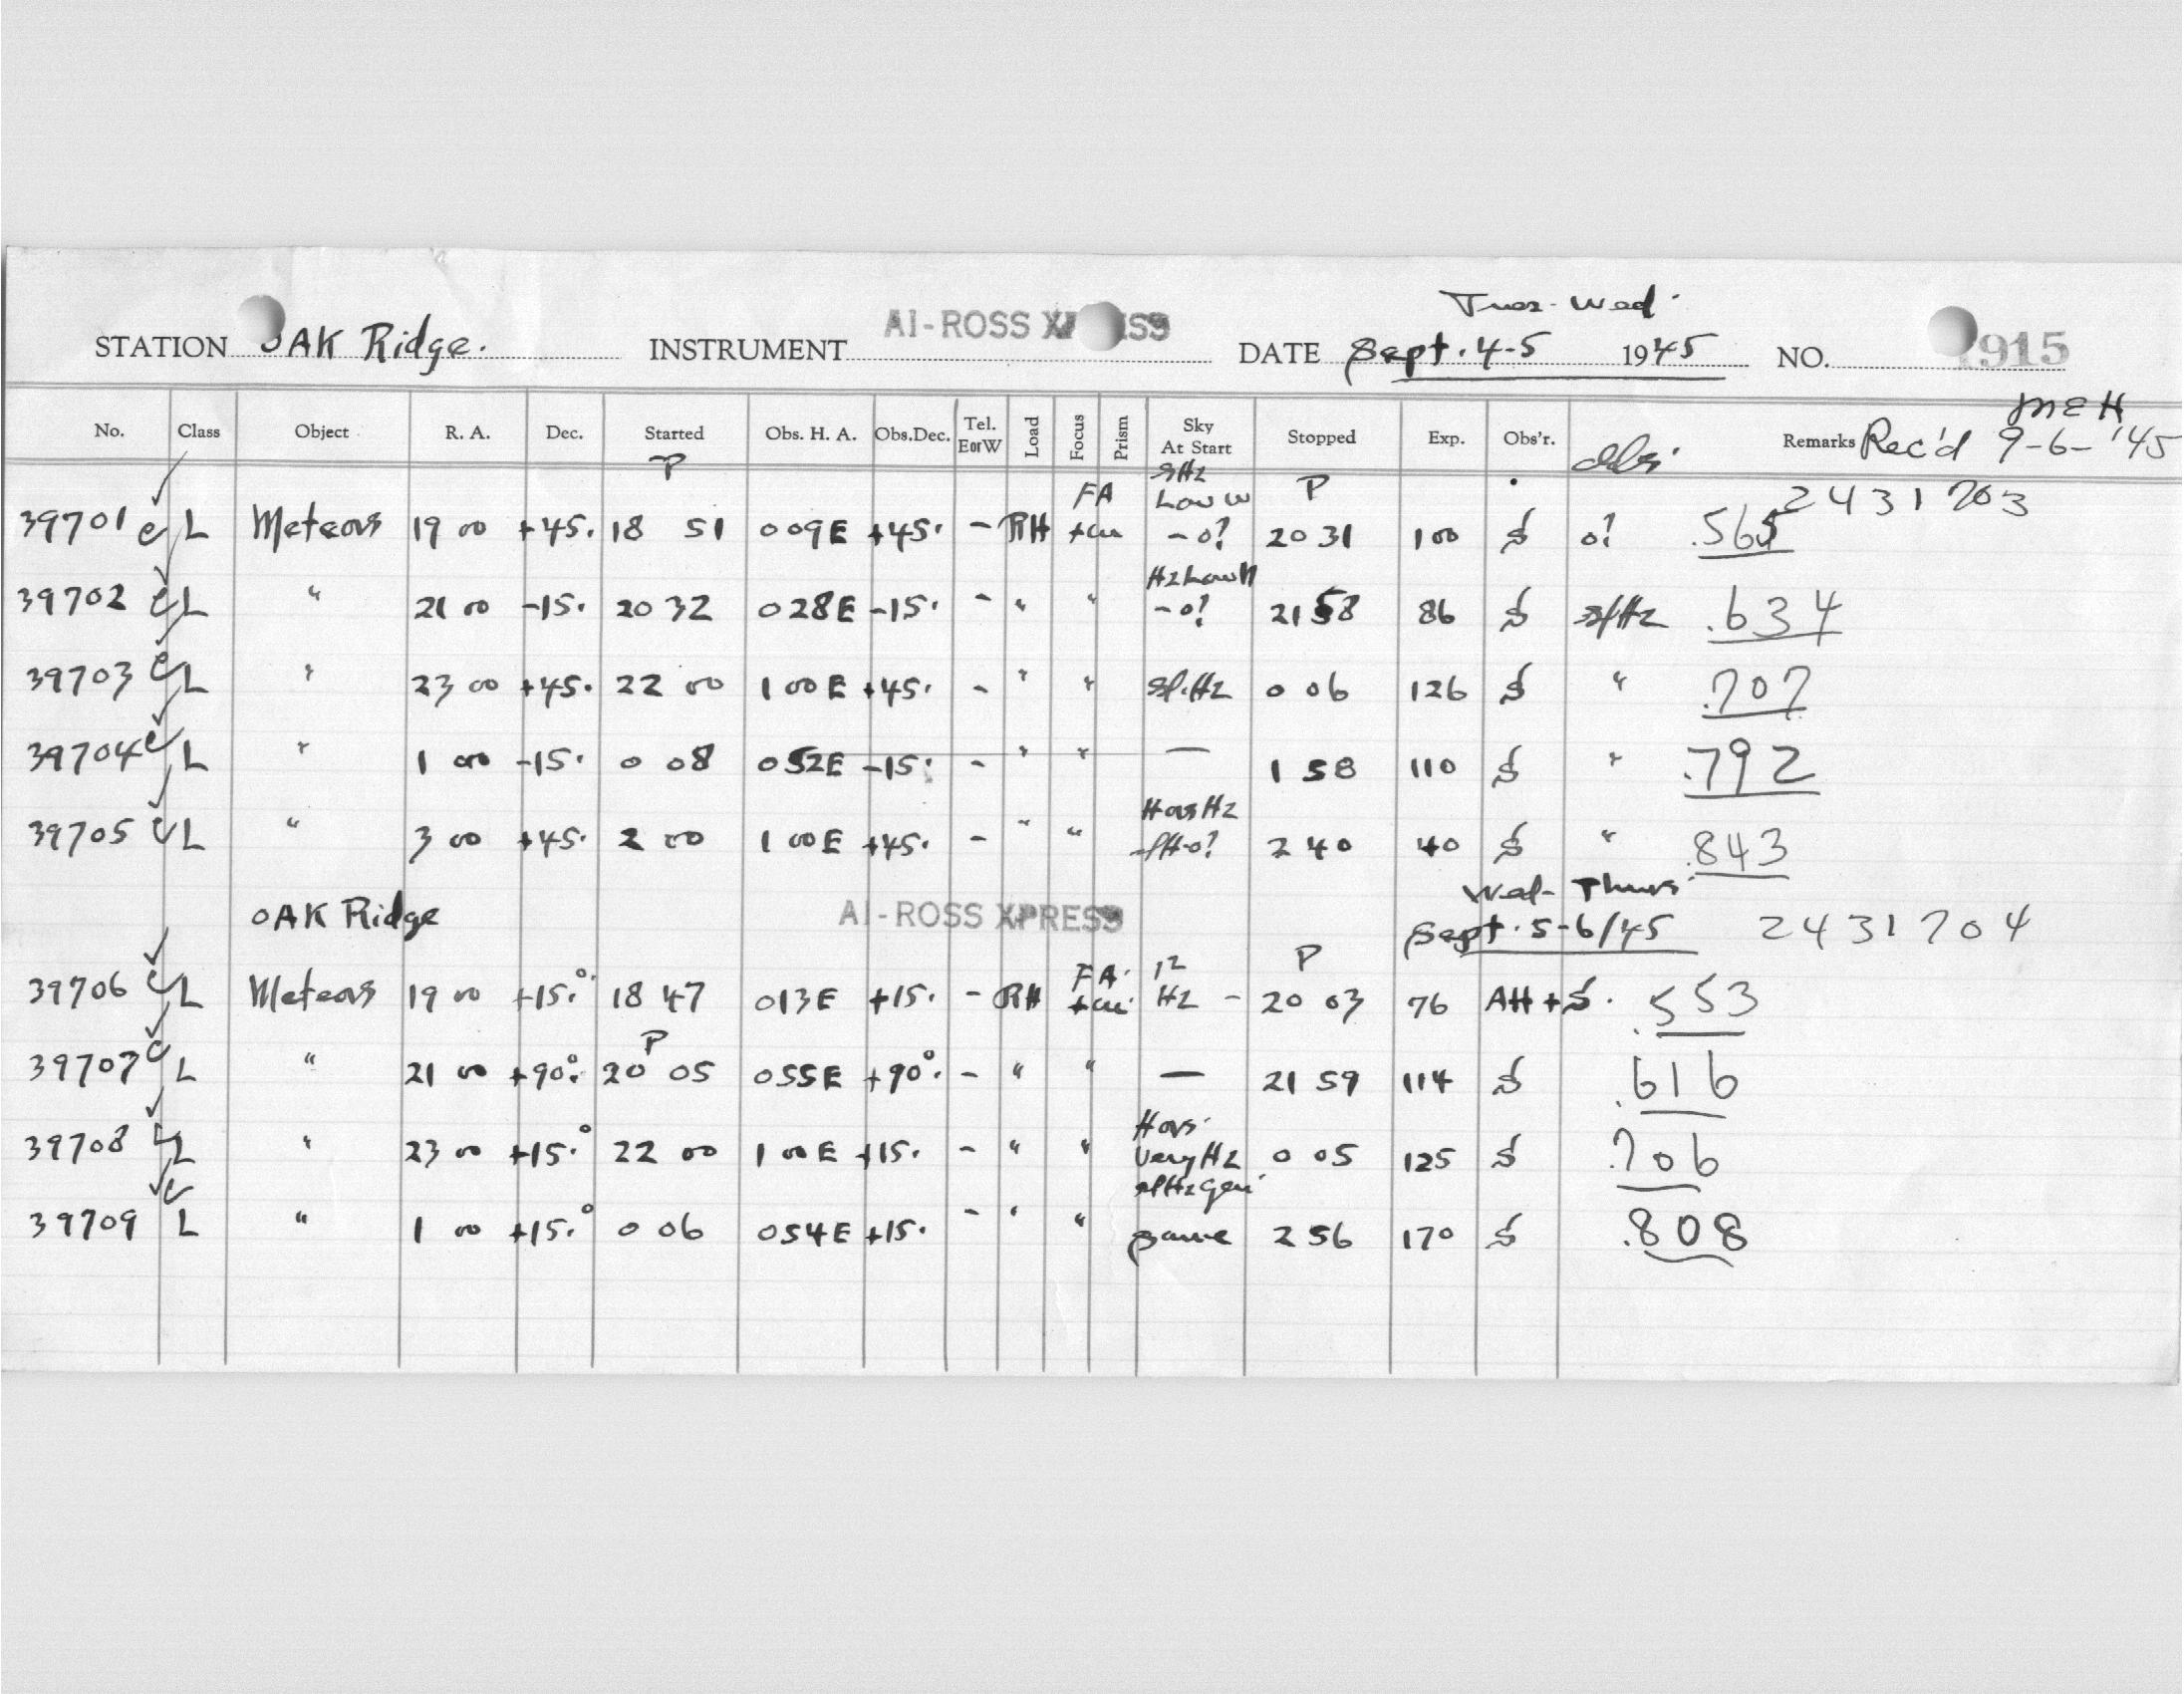 Tues-Wed.
STATION OAK Ridge. INSTRUMENT AI-ROSS XPRESS DATE Sept. 4-5 1945 NO. 915
MEH
No. Class Object R. A. Dec. Started Obs. H. A. Obs.Dec. Tel. E or W Load Focus Prism Sky At Start Stopped Exp. Obs'r. Remarks Rec'd 9-6-'45
P FA Low W P 2431703
39701 c L Meteors 19 00 +45. 18 51 009E +45. - RH - o? 20 31 100 S o? .565
Hz Low N
39702 c L " 21 00 -15. 20 32 028E -15. - " " - o? 21 58 86 S sl Hz .634
39703 c L " 23 00 +45. 22 00 1 00E +45. - " " sl. Hz 0 06 126 S " .707
39704 c L " 1 00 -15. 0 08 052E -15. - " " — 1 58 110 S " .792
39705 c L " 3 00 +45. 2 00 1 00E +45. - " " 2 40 40 S " .843
Wed- Thurs
OAK Ridge AI-ROSS XPRESS Sept. 5-6/45 2431704
FA P
39706 c L Meteors 19 00 +15.° 18 47 013E +15. - RH Hz - 20 03 76 AH + S. .553
P
39707 c L " 21 00 +90.° 20 05 055E +90.° - " " — 21 59 114 S .616
39708 L " 23 00 +15.° 22 00 1 00E +15. - " " Very Hz 0 05 125 S .706
39709 c L " 1 00 +15.° 0 06 054E +15. - " " same 2 56 170 S .808